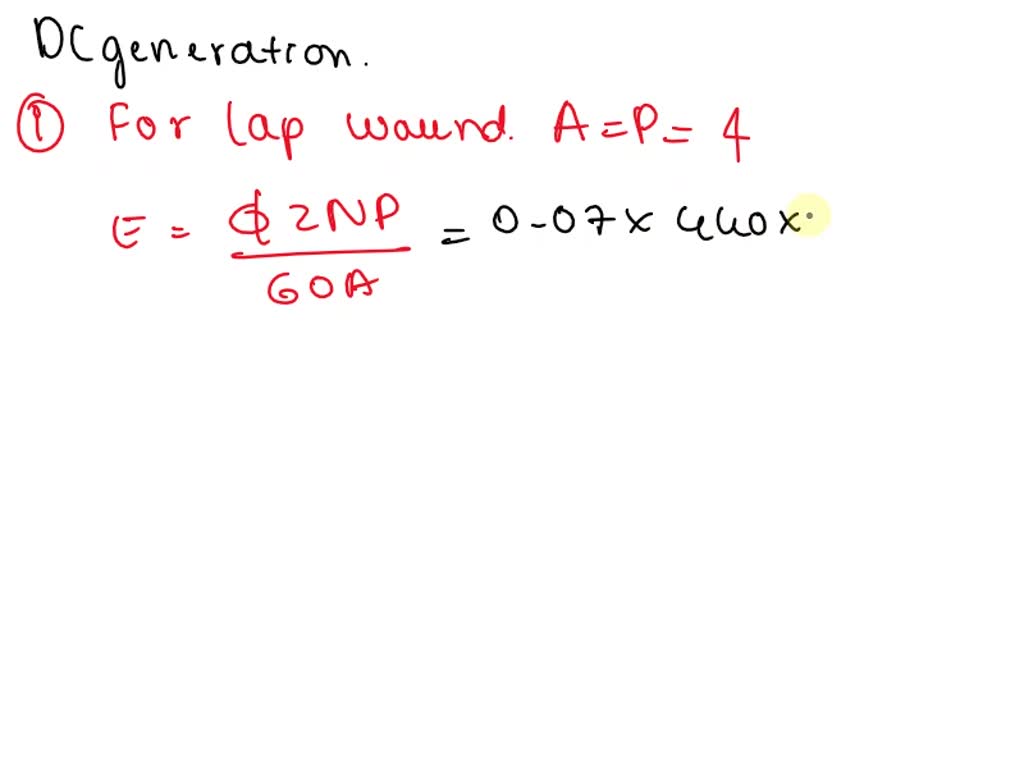 DC generation.
① For lap waund. A = P = 4
E = ΦZNP / 60A = 0.07 x 440 x